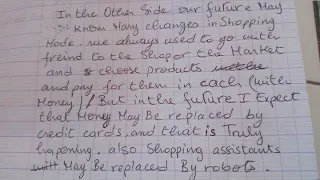 In the Other Side our future May
Know Many changes in Shopping
Mode. we always used to go with
freind to the Shop or the Market
and choose products
and pay for them in cach (with
Money) / But in the future I Expect
that Money May Be replaced by
credit cards, and that is Truly
happening. also Shopping assistants
May Be replaced By robots.